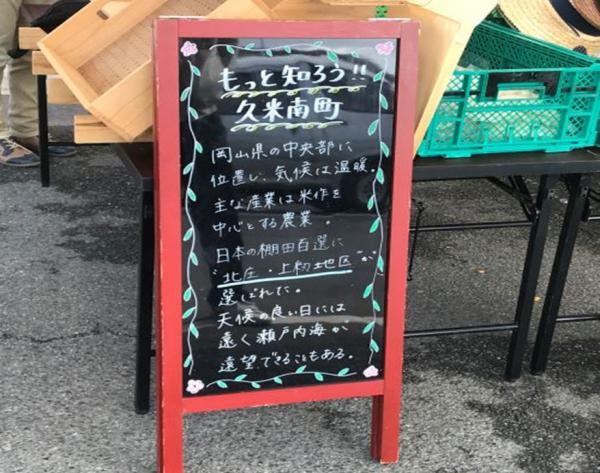 もっと知ろう!!
久米南町
岡山県の中央部に
位置し、気候は温暖。
主な産業は米作を
中心とする農業。
日本の棚田百選に
"北庄・上籾地区"が
選ばれた。
天候の良い日には
遠く瀬戸内海が
遠望できることもある。